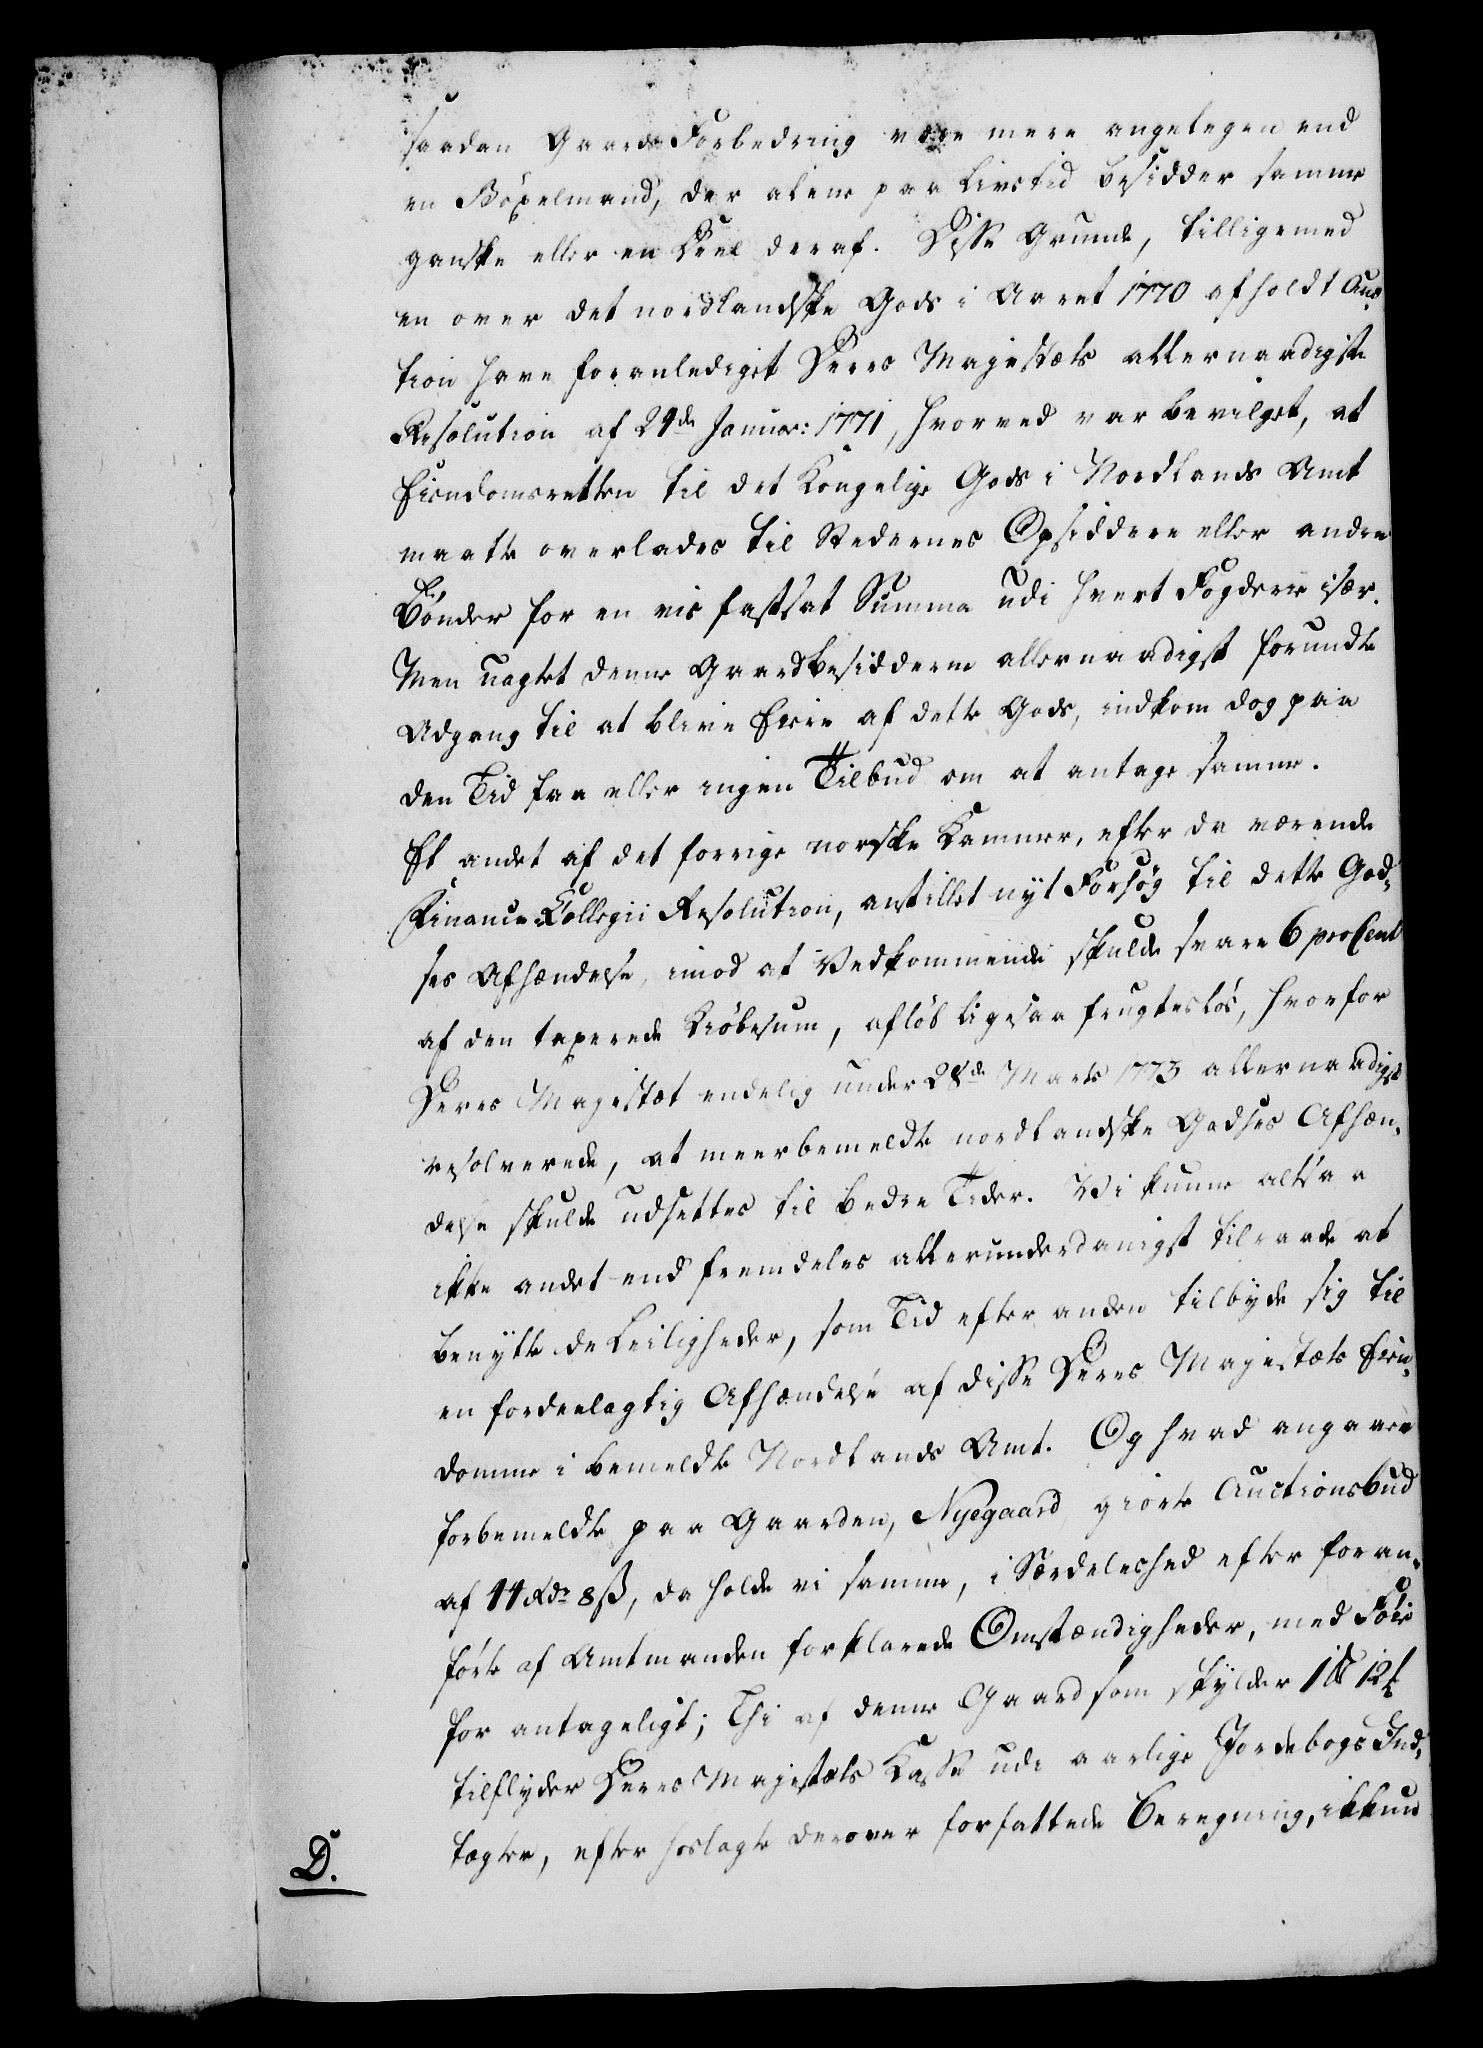 saadan Gaards Forbedring være mere angelegen end
en Böxelmand, der alene paa Livstid besidder samme
ganske eller en Deel deraf. Disse Grunde, tilligemed
en over det nordlandske Gods i Aaret 1770 afholdt Auc-
tion have foranlediget Deres Majestæts allernaadigste
Resolution af 24de Januar: 1771, hvorved var bevilget, at
Eiendomsretten til det Kongelige Gods i Nordlands Amt
maatte overlades til Stedernes Opsiddere eller andre
Bönder for en vis fastsat Summa udi hvert Fogderie især.
Men uagtet denne Gaardbesidderne allernaadigst forundte
Adgang til at blive Eiere af dette Gods, indkom dog paa
den Tid faa eller ingen Tilbud om at antage samme.
Et andet af det forrige norske Kammer, efter da værende
Finance-Collegii Resolution, anstillet nyt Forsög til dette God-
ses Afhændelse, imod at Vedkommende skulde svare 6 pro Cent
af den taxerede Kiöbesum, aflöb ligesaa frugteslös, hvorfor
Deres Majestæt endelig under 28de Marts 1773 allernaadigst
resolverede, at meerbemeldte nordlandske Godses Afhæn-
delse skulde udsettes til bedre Tider. Vi kunne altsaa
ikke andet end fremdeles allerunderdanigst tilraade at
benytte de Leiligheder, som Tid efter anden tilbyde sig til
en fordeelagtig Afhændelse af disse Deres Majestæts Eien-
domme i bemeldte Nordlands Amt. Og hvad angaaer
forbemeldte paa Gaarden, Nyegaard giorte Auctionsbud
af 44 Rdr 8 ß, da holde vi samme, i Særdeleshed efter foran-
förte af Amtmanden forklarede Omstændigheder, med Föie
for antageligt; Thi af denne Gaard som skylder 1 12
tilflyder Deres Majestæts Kasse udi aarlige Jordebogs Ind-
tægter, efter hoslagte derover forfattede Beregning, ikkun
D.